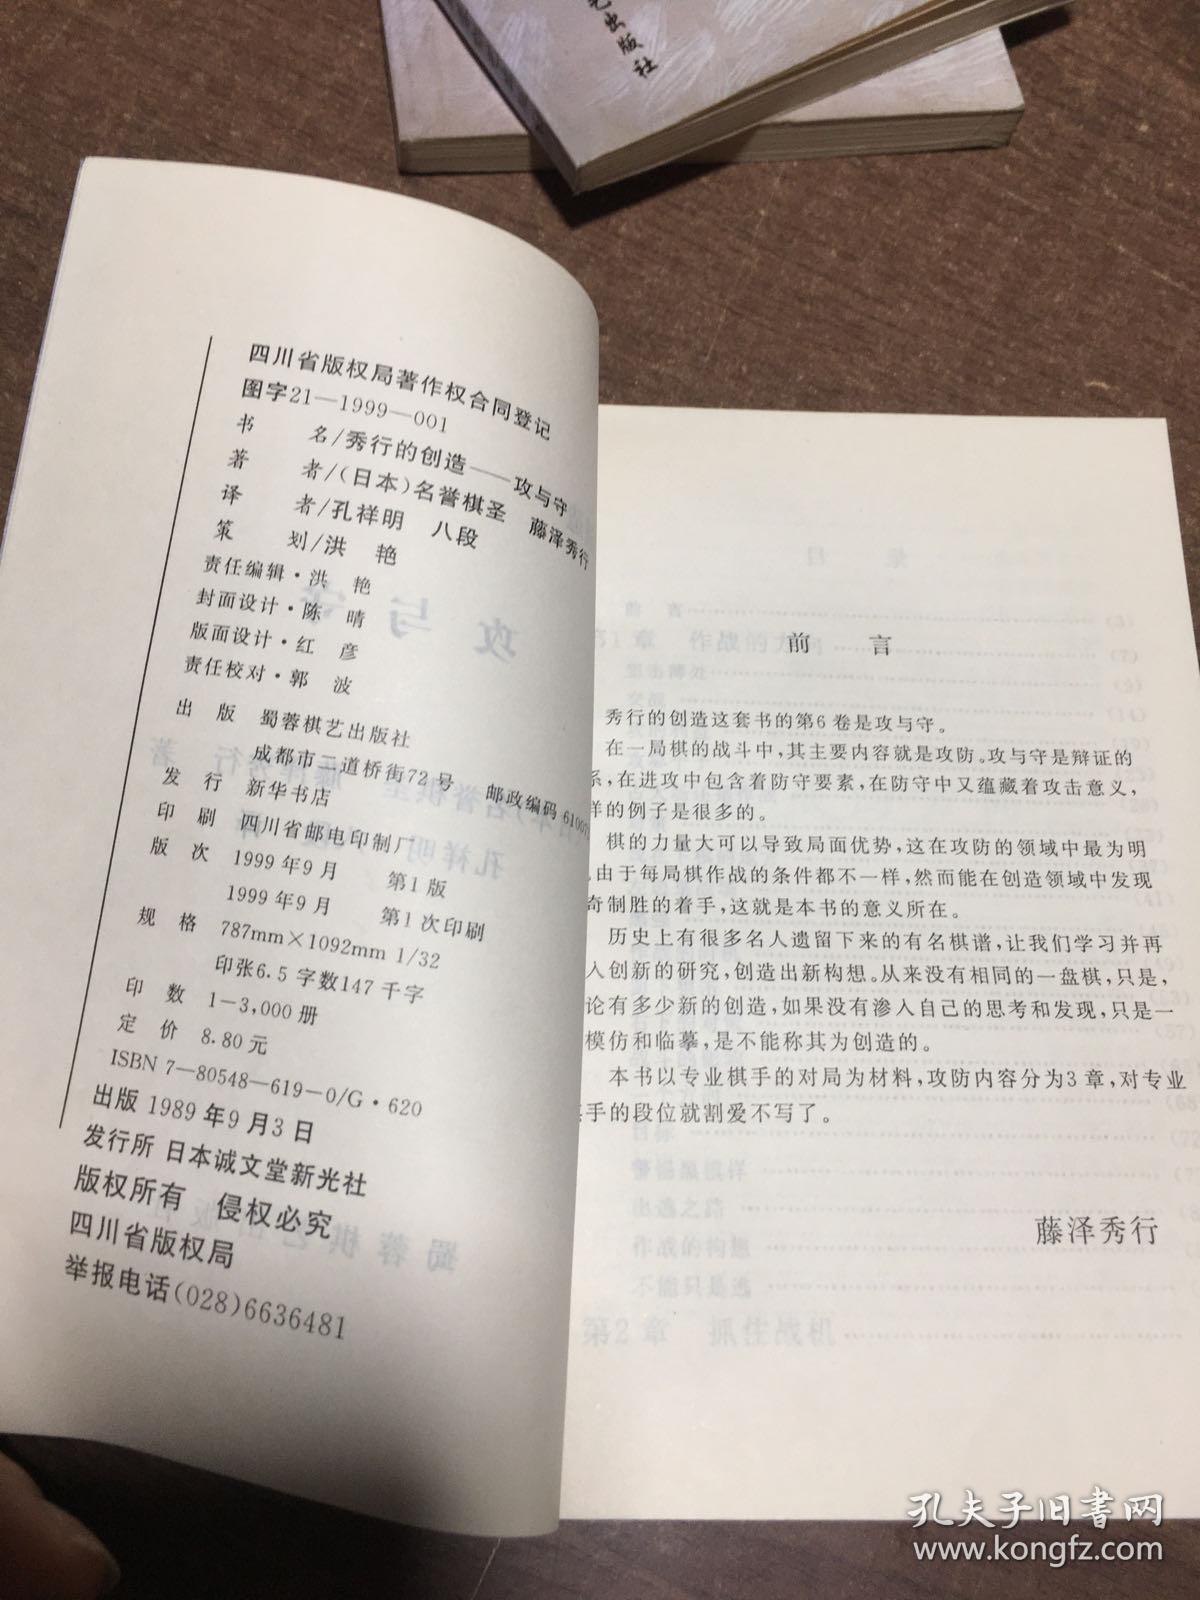 艺出版社
四川省版权局著作权合同登记
图字21—1999—001
书 名/秀行的创造——攻与守
著 者/(日本)名誉棋圣 藤泽秀行
译 者/孔祥明 八段
策 划/洪 艳
责任编辑·洪 艳
封面设计·陈 晴
版面设计·红 彦
责任校对·郭 波
出 版 蜀蓉棋艺出版社
成都市二道桥街72号 邮政编码6100
发 行 新华书店
印 刷 四川省邮电印制厂
版 次 1999年9月 第1版
1999年9月 第1次印刷
规 格 787mm×1092mm 1/32
印张6.5 字数147千字
印 数 1—3,000册
定 价 8.80元
ISBN 7—80548—619—0/G·620
出版 1989年9月3日
发行所 日本诚文堂新光社
版权所有 侵权必究
四川省版权局
举报电话(028)6636481
前 言
秀行的创造这套书的第6卷是攻与守。
在一局棋的战斗中,其主要内容就是攻防。攻与守是辩证的
系,在进攻中包含着防守要素,在防守中又蕴藏着攻击意义,
样的例子是很多的。
棋的力量大可以导致局面优势,这在攻防的领域中最为明
。由于每局棋作战的条件都不一样,然而能在创造领域中发现
奇制胜的着手,这就是本书的意义所在。
历史上有很多名人遗留下来的有名棋谱,让我们学习并再
人创新的研究,创造出新构想。从来没有相同的一盘棋,只是,
论有多少新的创造,如果没有渗入自己的思考和发现,只是一
模仿和临摹,是不能称其为创造的。
本书以专业棋手的对局为材料,攻防内容分为3章,对专业
棋手的段位就割爱不写了。
藤泽秀行
第2章 抓住战机
孔夫子旧书网
www.kongfz.com